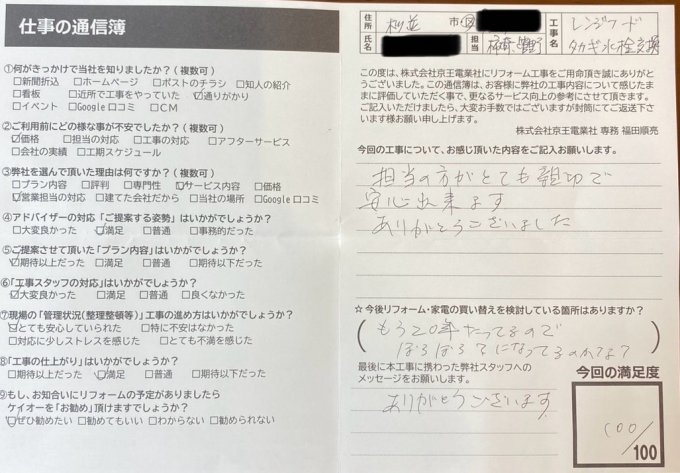 仕事の通信簿
①何がきっかけで当社を知りましたか?(複数可)
□新聞折込 □ホームページ □ポストのチラシ □知人の紹介
□看板 □近所で工事をやっていた ☑通りがかり
□イベント □Google口コミ □CM
②ご利用前にどの様な事が不安でしたか?(複数可)
☑価格 □担当の対応 □工事の対応 □アフターサービス
□会社の実績 □工期スケジュール
③弊社を選んで頂いた理由は何ですか?(複数可)
□プラン内容 □評判 □専門性 ☑サービス内容 □価格
☑営業担当の対応 □建てた会社だから □当社の場所 □Google口コミ
④アドバイザーの対応「ご提案する姿勢」はいかがでしょうか?
□大変良かった ☑満足 □普通 □事務的だった
⑤ご提案させて頂いた「プラン内容」はいかがでしょうか?
☑期待以上だった □満足 □普通 □期待以下だった
⑥「工事スタッフの対応」はいかがでしょうか?
☑大変良かった □満足 □普通 □良くなかった
⑦現場の「管理状況(整理整頓等)」工事の進め方はいかがでしょうか?
☑とても安心していられた □特に不安はなかった
□対応に少しストレスを感じた □とても不満を感じた
⑧「工事の仕上がり」はいかがでしょうか?
□期待以上だった ☑満足 □普通 □期待以下だった
⑨もし、お知合いにリフォームの予定がありましたら
ケイオーを「お勧め」頂けますでしょうか?
☑ぜひ勧めたい □勧めてもいい □わからない □勧められない
住所 市・区
氏名 担当
工事名 レンジフード
タカギ水栓交換
この度は、株式会社京王電業社にリフォーム工事をご用命頂き誠にありがとうございました。この通信簿は、お客様が弊社の工事内容について感じたままに評価していただく事で、更なるサービス向上の参考にさせて頂きます。
ご記入いただけましたら、大変お手数ではございますが封筒にてご返送下さいます様お願い申し上げます。
株式会社京王電業社 専務 福田順亮
今回の工事について、お感じ頂いた内容をご記入お願いします。
担当の方がとても親切で
安心出来ます
ありがとうございました
☆今後リフォーム・家電の買い替えを検討している箇所はありますか?
(もう20年たってるので
ぼろぼろてになってるのかな?)
最後に本工事に携わった弊社スタッフへの
メッセージをお願いします。
ありがとうございます
今回の満足度
100/100